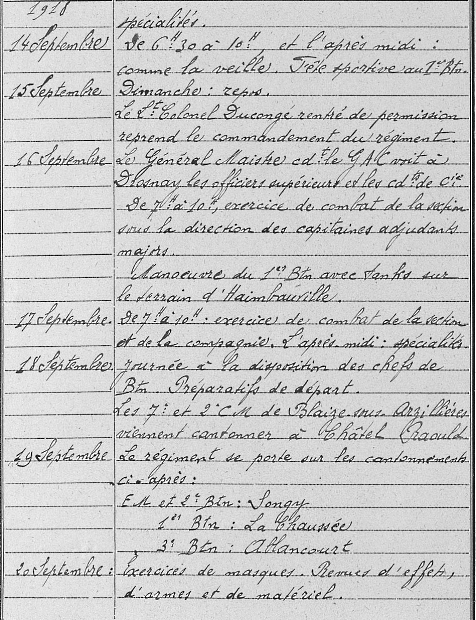 1918
spécialités.
14 Septembre De 6ʰ30 à 10ʰ, et l'après midi :
comme la veille. Fête sportive au 1ᵉʳ Btn.
15 Septembre Dimanche : repos.
Le Lᵗ Colonel Ducongé rentré de permission
reprend le commandement du régiment.
16 Septembre Le Général Maistre cdᵗ le GAC voit à
Dosnay les officiers supérieurs et les cdᵗˢ de Cⁱᵉ.
De 7ʰ à 10ʰ, exercice de combat de la section
sous la direction des capitaines adjudants
majors.
Manoeuvre du 1ᵉʳ Btn avec tanks sur
le terrain d'Haimbauville.
17 Septembre. De 7ʰ à 10ʰ : exercice de combat de la section
et de la compagnie. L'après-midi : spécialités
18 Septembre journée à la disposition des chefs de
Btn. Préparatifs de départ.
Les 7ᵉ et 2ᵉ CM de Blaize sous Arzillières
viennent cantonner à Châtel Raould.
19 Septembre Le régiment se porte sur les cantonnements
ci-après :
EM et 2ᵉ Btn : Songy
1ᵉʳ Btn : La Chaussée
3ᵉ Btn : Ablancourt
20 Septembre : Exercices de masques. Revues d'effets,
d'armes et de matériel.